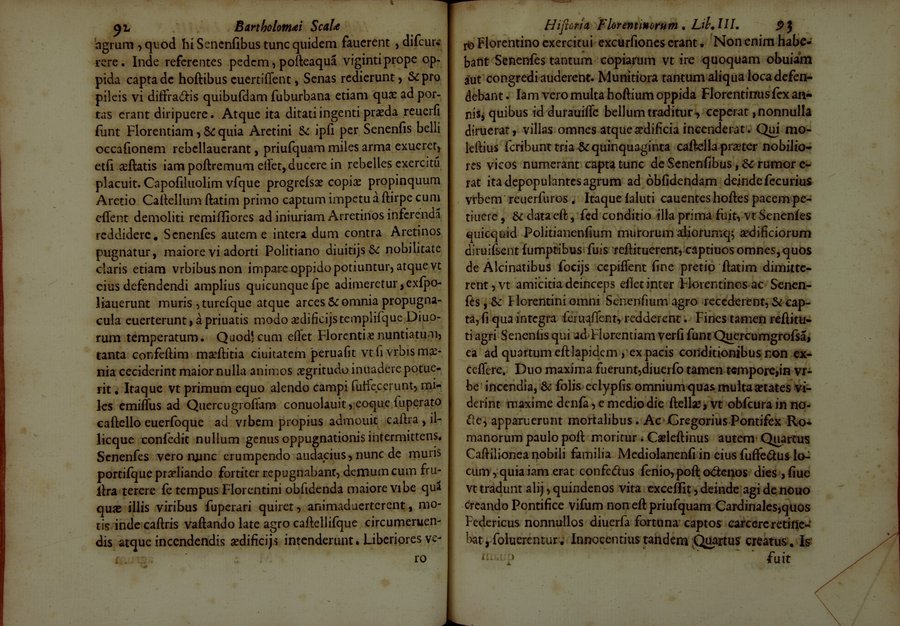 92 Bartholomæi Scalæ
agrum, quod hi Senensibus tunc quidem fauerent, discur-
rere. Inde referentes pedem, posteaquã viginti prope op-
pida capta de hostibus euertissent, Senas redierunt, & pro
pileis vi diffractis quibusdam suburbana etiam quæ ad por-
tas erant diripuere. Atque ita ditati ingenti præda reuersi
sunt Florentiam, & quia Aretini & ipsi per Senensis belli
occasionem rebellauerant, priusquam miles arma exueret,
etsi æstatis iam postremum esset, ducere in rebelles exercitũ
placuit. Caposiluolim vsque progressæ copiæ propinquum
Aretio Castellum statim primo captum impetu à stirpe cum
essent demoliti remissiores ad iniuriam Arretinos inferendã
reddidere. Senenses autem e intera dum contra Aretinos
pugnatur, maiore vi adorti Politiano diuitijs & nobilitate
claris etiam vrbibus non impare oppido potiuntur, atque vt
eius defendendi amplius quicunque spe adimeretur, exspo-
liauerunt muris, turesque atque arces & omnia propugna-
cula euerterunt, à priuatis modo ædificijs templisque Diuo-
rum temperatum. Quod! cum esset Florentiæ nuntiatum,
tanta confestim mæstitia ciuitatem peruasit vt si vrbis mæ-
nia ceciderint maior nulla animos ægritudo inuadere potue-
rit. Itaque vt primum equo alendo campi suffecerunt, mi-
les emissus ad Quercugrossam conuolauit, eoque superato
castello euersoque ad vrbem propius admouit castra, il-
licque consedit nullum genus oppugnationis intermittens.
Senenses vero nunc erumpendo audacius, nunc de muris
portisque præliando fortiter repugnabant, demum cum fru-
stra terere se tempus Florentini obsidenda maiore vrbe quã
quæ illis viribus superari quiret, animaduerterent, mo-
tis inde castris vastando late agro castellisque circumeruen-
dis atque incendendis ædificijs intenderunt. Liberiores ve-
ro
Historia Florentinorum. Lib. III. 93
ro Florentino exercitui excursiones erant. Non enim habe-
bant Senenses tantum copiarum vt ire quoquam obuiam
aut congredi auderent. Munitiora tantum aliqua loca defen-
debant. Iam vero multa hostium oppida Florentinus sex an-
nis, quibus id durauisse bellum traditur, ceperat, nonnulla
diruerat, villas omnes atque ædificia incenderat. Qui mo-
lestius scribunt tria & quinquaginta castella præter nobilio-
res vicos numerant capta tunc de Senensibus, & rumor e-
rat ita depopulantes agrum ad obsidendam deinde securius
vrbem reuersuros. Itaque saluti cauentes hostes pacem pe-
tiuere, & data est, sed conditio illa prima fuit, vt Senenses
quicquid Politianensium murorum aliorumq; ædificiorum
diruissent sumptibus suis restituerent, captiuos omnes, quos
de Alcinatibus socijs cepissent sine pretio statim dimitte-
rent, vt amicitia deinceps esset inter Florentinos ac Senen-
ses, & Florentini omni Senensium agro recederent, & cap-
ta, si qua integra seruassent, redderent. Fines tamen restitu-
ti agri Senensis qui ad Florentiam versi sunt Quercumgrossã,
ea ad quartum est lapidem, ex pacis conditionibus non ex-
cessere. Duo maxima fuerunt, diuerso tamen tempore, in vr-
be incendia, & solis eclypsis omnium quas multa ætates vi-
derint maxime densa, e medio die stellæ, vt obscura in no-
cte, apparuerunt mortalibus. Ac Gregorius Pontifex Ro-
manorum paulo post moritur. Cælestinus autem Quartus
Castilionea nobili familia Mediolanensi in eius suffectus lo-
cum, quia iam erat confectus senio, post octenos dies, siue
vt tradunt alij, quindenos vita excessit, deinde agi de nouo
creando Pontifice visum non est priusquam Cardinales, quos
Federicus nonnullos diuersa fortuna captos carcere retine-
bat, soluerentur. Innocentius tandem Quartus creatus. Is
fuit